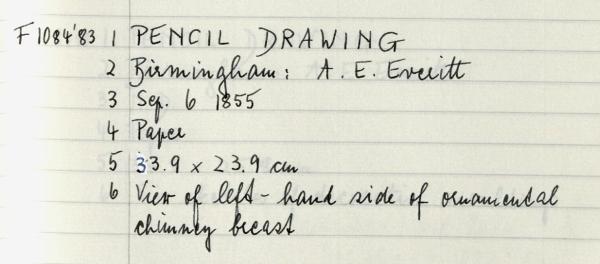 F1084'83 1 PENCIL DRAWING
2 Birmingham: A. E. Everitt
3 Sep. 6 1855
4 Paper
5 33.9 x 23.9 cm
6 View of left-hand side of ornamental
chimney breast